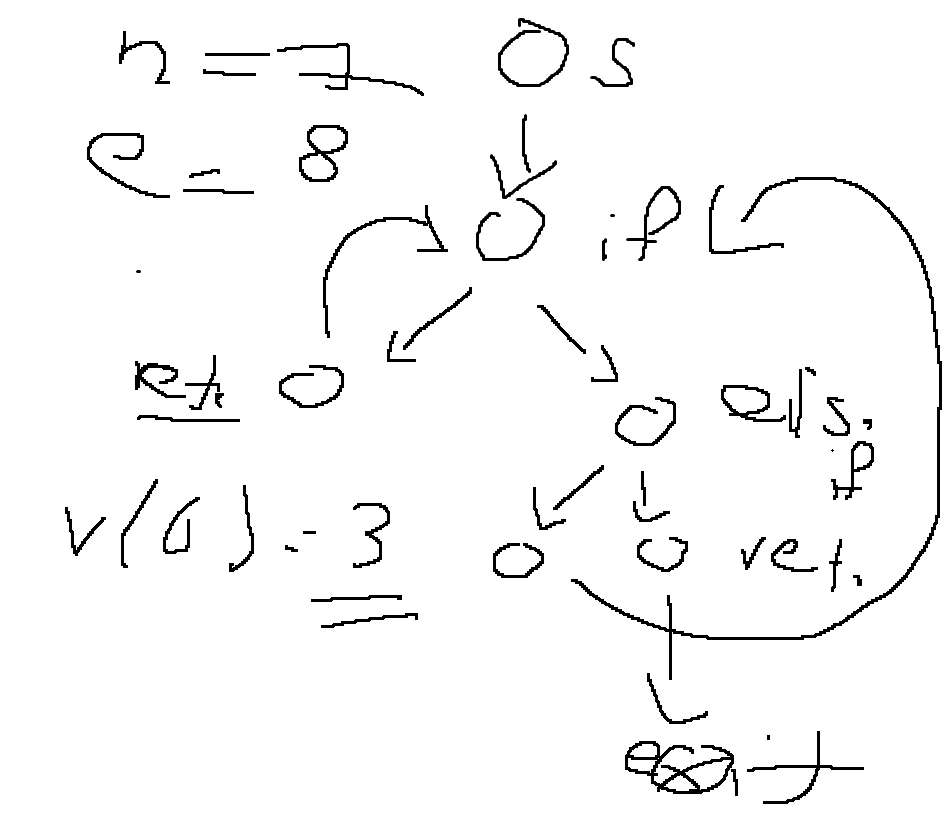 n = 7
S
e = 8
if
ret.
els.
if
V(G) = 3
ret.
exit